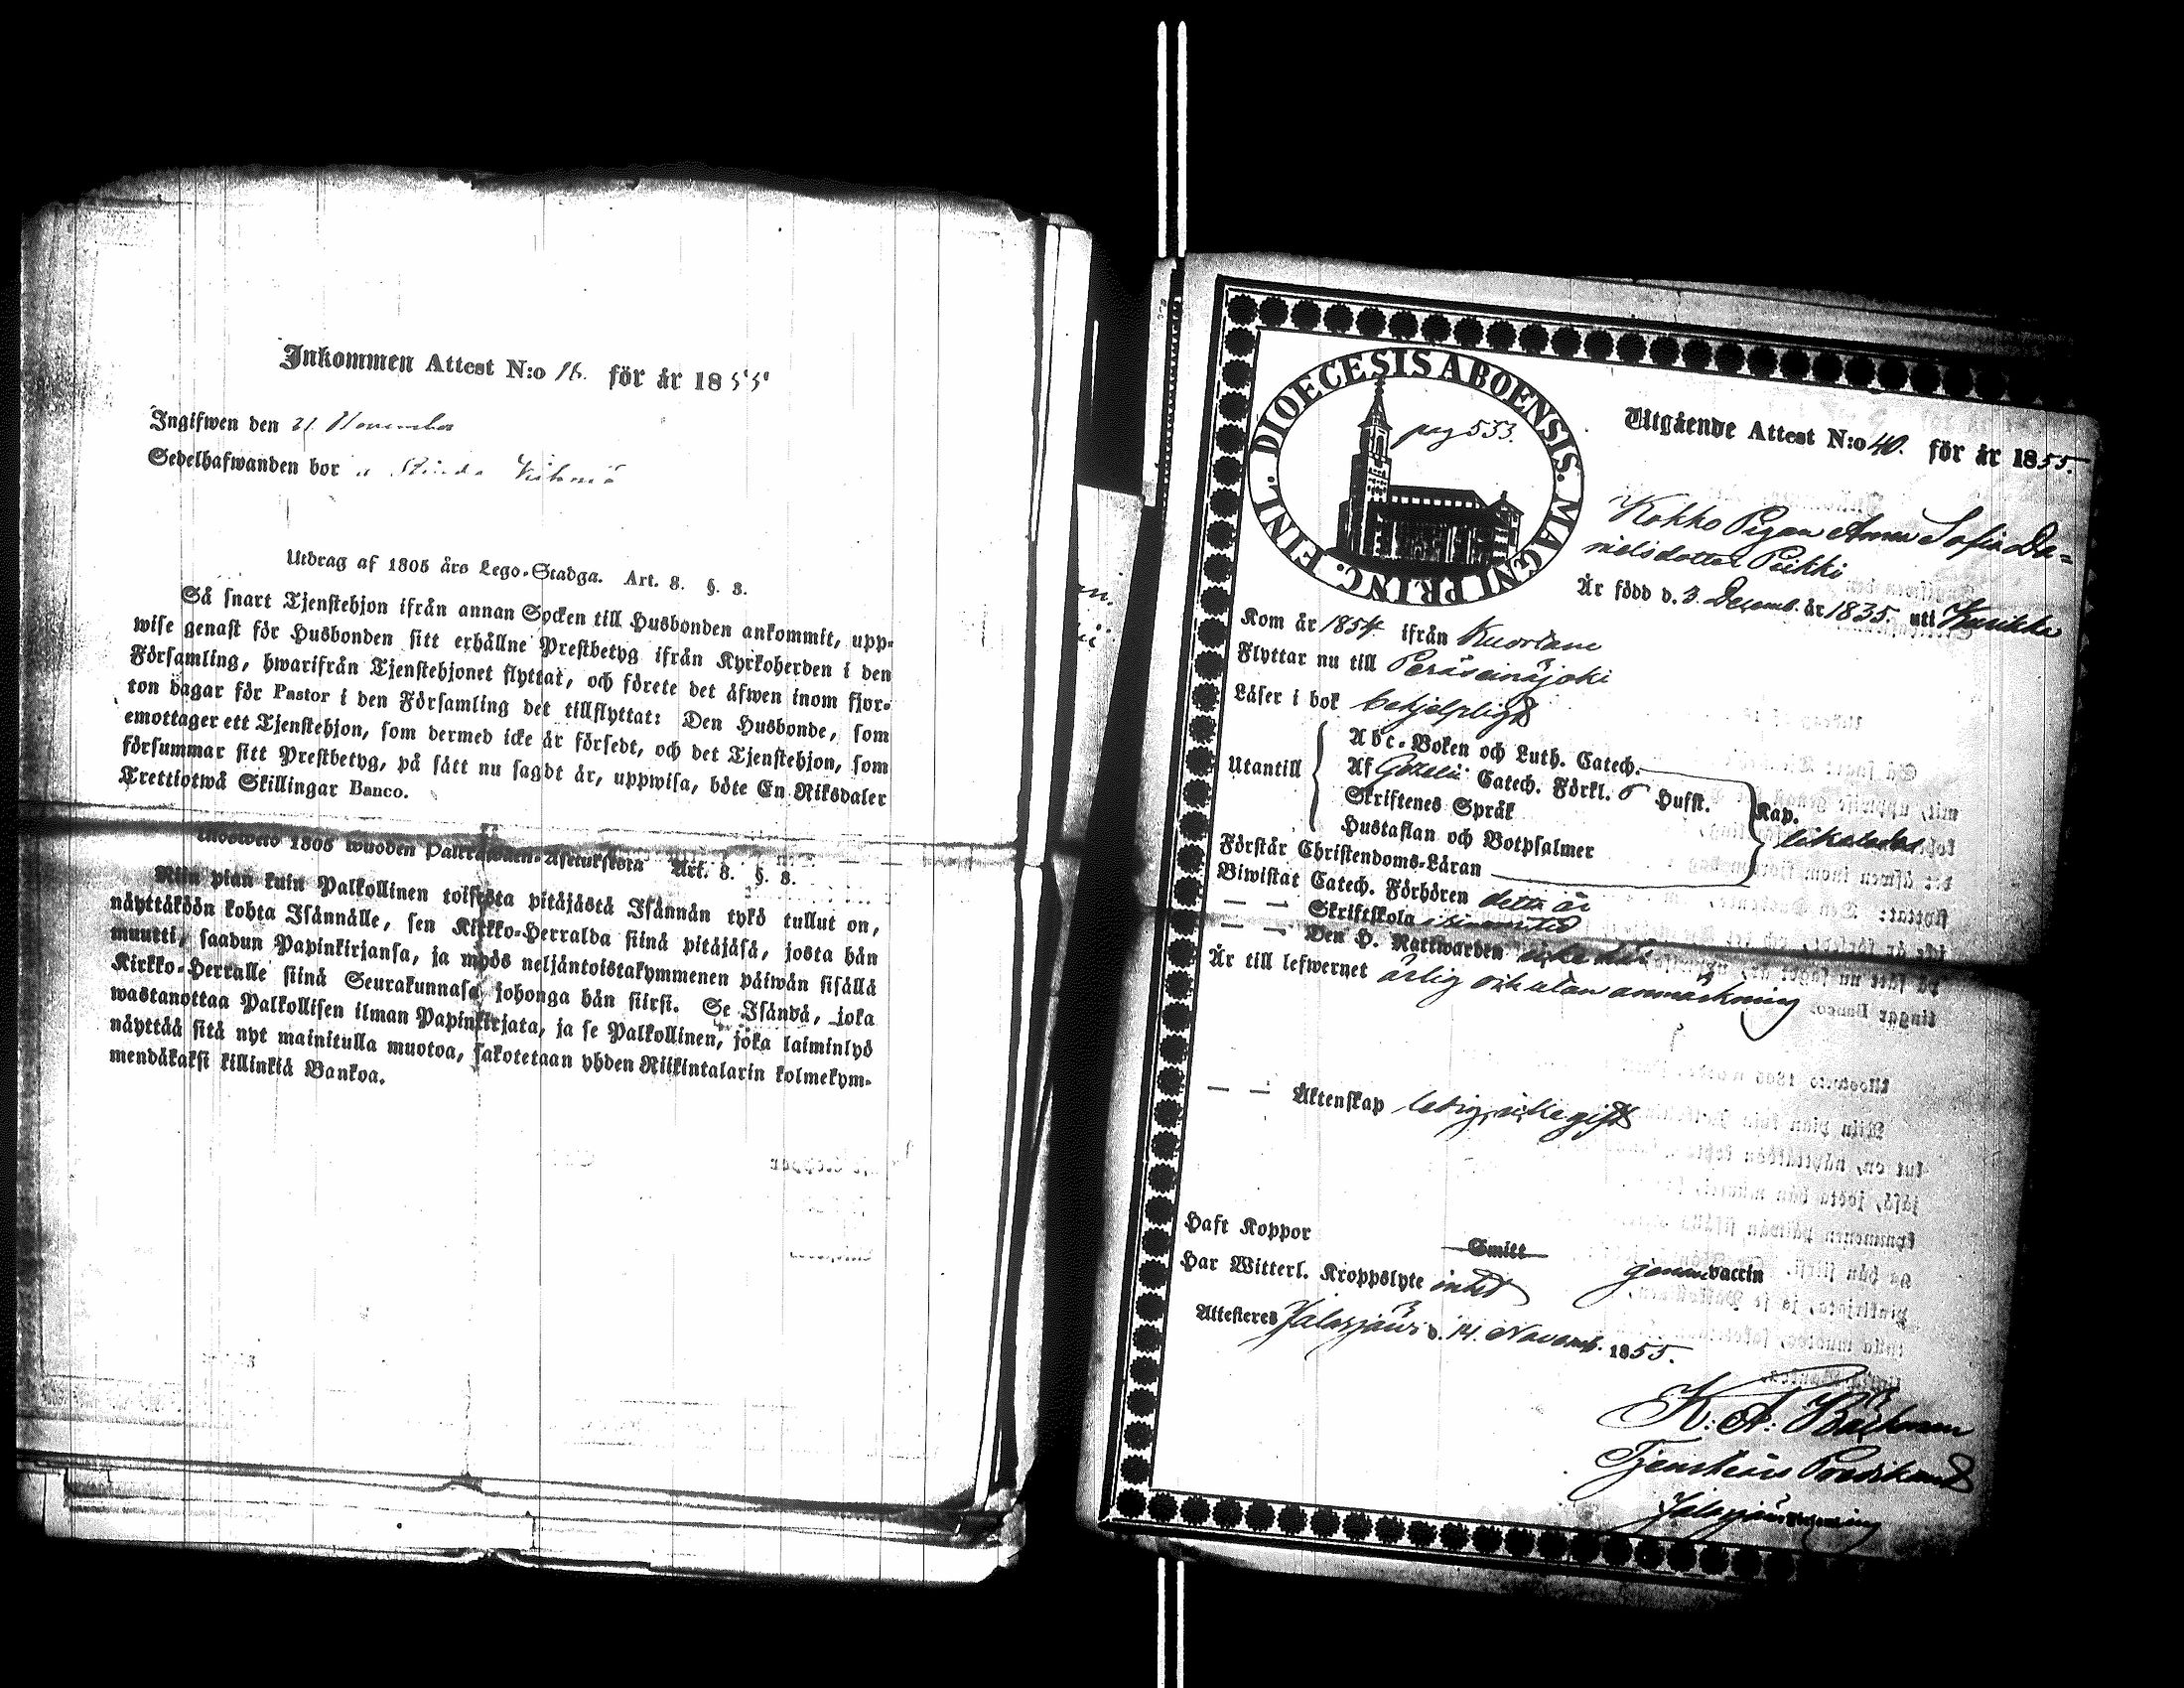 Inkommen Attest N:o 16. för år 1855
Ingifwen den 21 November
Sedelhafwanden bor
Utdrag af 1805 års Lego-Stadga. Art. 8. §. 3.
Så snart Tjenstehjon ifrån annan Socken till Husbonden ankommit, upp-
wise genast för Husbonden sitt erhållne Prestbetyg ifrån Kyrkoherden i den
Församling, hwarifrån Tjenstehjonet flyttat, och förete det åfwen inom fjor-
ton dagar för Pastor i den Församling det tillflyttat: Den Husbonde, som
emottager ett Tjenstehjon, som dermed icke är försedt, och det Tjenstehjon, som
försummar sitt Prestbetyg, på sätt nu sagdt är, uppwisa, böte En Riksdaler
Trettiotwå Skillingar Banco.
1805 wuoden Palkollisten-Asetuksesta Art. 8. §. 3.
Niin pian kuin Palkollinen toisesta pitäjästä Isännän tykö tullut on,
näyttäköön kohta Isännälle, sen Kirkko-Herralda siinä pitäjäsä, josta hän
muutti, saadun Papinkirjansa, ja myös neljäntoistakymmenen päiwän sisällä
Kirkko-Herralle siinä Seurakunnasa johonga hän siirsi. Se Isändä, joka
wastanottaa Palkollisen ilman Papinkirjata, ja se Palkollinen, joka laiminlyö
näyttää sitä nyt mainitulla muotoa, sakotetaan yhden Riikintalarin kolmekym-
mendäkaksi killinkiä Bankoa.
DIOECESIS ABOENSIS. MAGNI PRINC. FINL.
pag 553.
Utgående Attest N:o 40. för år 1855.
Kokko Pigan Anna Sofia Da-
nielsdotter Piikki
Är född d. 3 Decemb. år 1835. uti Kurikka
Kom år 1854 ifrån Kuortane
Flyttar nu till Peräseinäjoki
Läser i bok behjelpligt
Utantill
Abc-Boken och Luth. Catech.
Af Gezelii Catech. Förkl. o Husst.
Skriftenes Språk
Hustaflan och Botpsalmer
Kap.
likaledes
Förstår Christendoms-Läran
Biwistat Catech. Förhören detta år
— — Skriftskola
— — Den H. Nattwarden
Är till lefwernet ärlig och utan anmärkning
— — Äktenskap ledig, icke gift
Haft Koppor Smitt genom vaccin
Har Witterl. Kroppslyte intet
Attesteres Jalasjärvi d. 14. Novemb. 1855.
K. A.
Tjenstförr. Predikant
Jalasjärvi